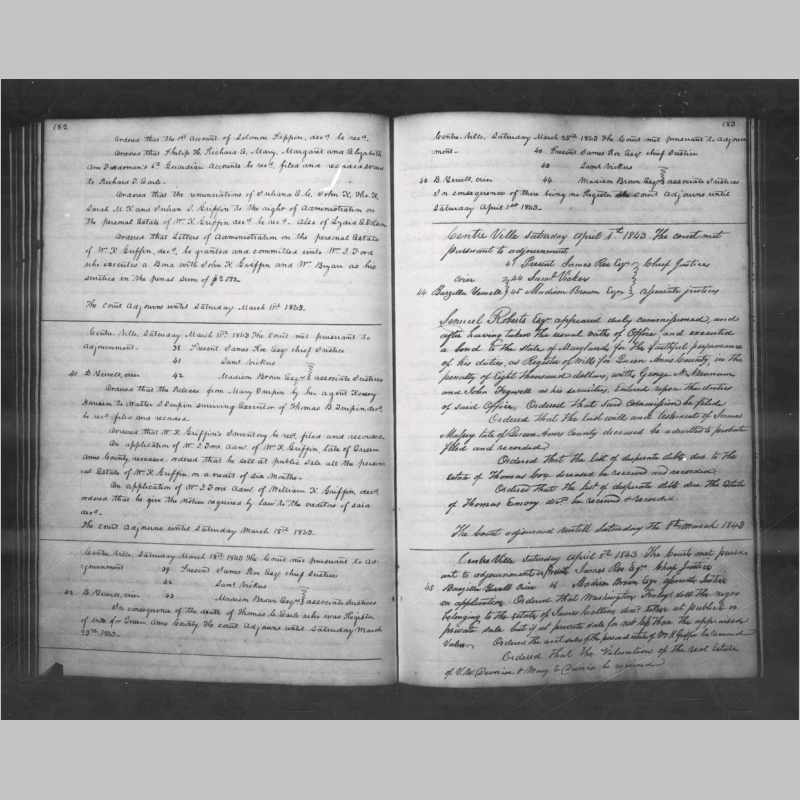 182
Ordered that the 1st Account of Solomon Pippin, decd be recd.
Ordered that Philip H. Richard C. Mary, Margaret and Elizabeth
Ann 6th Guardian Accounts be recd, filed and
to Richard T. Earle.
Ordered that the renunciations of Juliana E. C. John K, Tho. K,
Sarah M. K and Susan S. Griffin to the right of Administration on
the personal Estate of Wm K. Griffin decd be recd. Also of Lydia
Ordered that Letters of Administration on the personal Estate
of Wm K. Griffin, decd, be granted and committed unto Wm T. Tord
who executes a Bond with John K. Griffin and Wm Bryan as his
sureties in the penal sum of $
The court Adjourns until Saturday March 11th 1843.
Centre Ville, Saturday March 11th 1843 The Court met pursuant to
adjournment. 38 Present James Roe Esqr chief Justice
41 Saml Vickers
41 B. Yewell, crier 42 Madison Brown Esqrs associate Justices
Ordered that the Release from Mary Turpin by her agent
to Walter J. Turpin surviving Executor of Thomas B. Turpin decd
be recd filed and recorded.
Ordered that W. K. Griffin's Inventory be recd, filed and recorded.
On application of Wm T. Tord Admr. of Wm K. Griffin, late of Queen
Anns County, deceased, ordered that he sell at public sale all the person-
al Estate of Wm K. Griffin on a credit of six Months.
On application of Wm T. Tord Admr. of William K. Griffin, decd
ordered that he give the Notice required by Law to the creditors of said
decd.
The court Adjourns until Saturday March 18th 1843.
Centre Ville, Saturday March 18th 1843 The Court met pursuant to Ad-
journment 39 Present James Roe Esqr chief Justice
42 Saml Vickers
42 B. Yewell, crier 43 Madison Brown Esqrs associate Justices
In consequence of the death of Thomas C. Earle who was Register
of wills for Queen Anns County the court Adjourns until Saturday March
25th 1843.
183
Centre Ville, Saturday March 25th 1843 The Court met pursuant to Adjourn-
ment. 40 Present James Roe Esqr chief Justice
43 Saml Vickers
43 B. Yewell, crier 44 Madison Brown Esqrs associate Justices
In consequence of there being no Register the court Adjourns until
Saturday April 1st 1843.
Centre Ville Saturday april 1st 1843 The court met
pursuant to adjournment
41 Present James Roe Esqr Chief Justices
crier 44 Saml Vickers
44 Barzillai Yewell 45 Madison Brown Esqr associate justices
Samuel Roberts Esqr appeared duly commissioned, and
after having taken the several oaths of Office, and executed
a bond to the state of Maryland for the faithful performance
of his duties, as Register of Wills for Queen Anns County, in the
penalty of Eight Thousand dollars, with George N. Newnam
and John Tignell as his securities, Entered upon the duties
of said Office. Ordered that said Commission be filed
Ordered that the last will and testament of James
Massey late of Queen Anns County deceased be admitted to probate
filed and recorded.
Ordered that the list of desperate debts due to the
estate of Thomas deceased be received and recorded.
Ordered that the list of desperate debts due the Estate
of Thomas Emory decd. be received & recorded.
The Court adjourned untill Saturday the 8th March 1843
Centre Ville Saturday April 8th 1843 The Court met pursu-
ant to adjournment 42 Present James Roe Esqr Chief Justice
45 Barzillai Yewell crier 46 Madison Brown Esqr associate Justice
on application. Ordered that Washington Finley sell the negro
belonging to the estate of James Collins decd. either at public or
private sale but if at private sale for not less than the appraised
Value. Ordered the acct. sales of the personal estate of Wm K. Griffin be received
Ordered that the Valuation of the real Estate
of be received